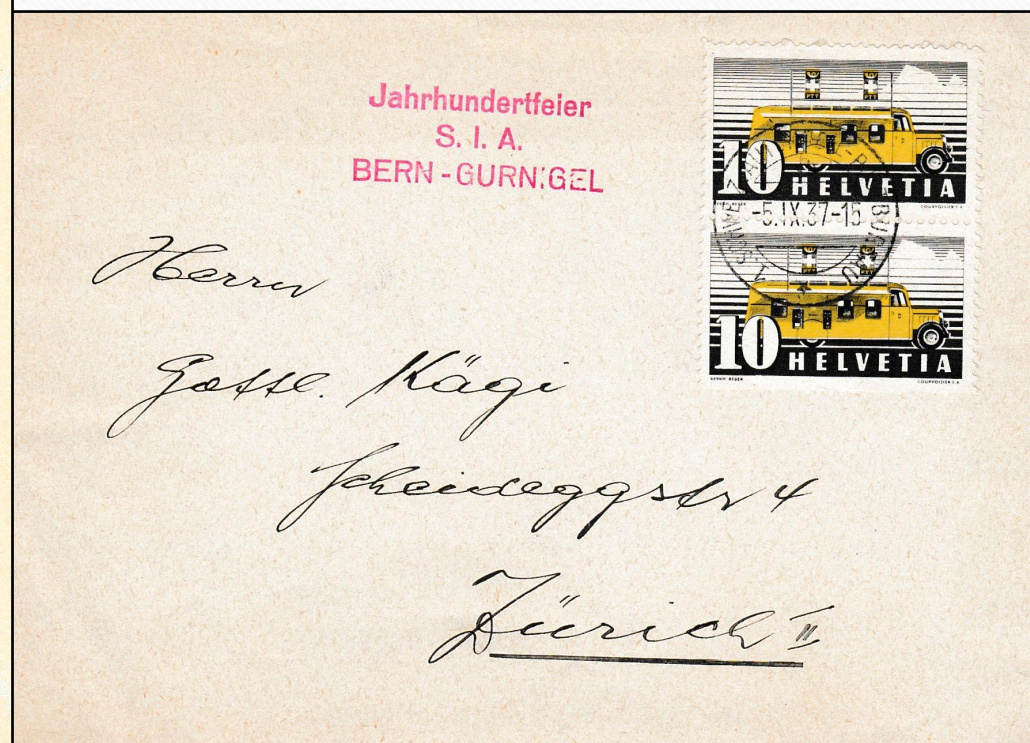 Jahrhundertfeier
S. I. A.
BERN - GURNIGEL
PTT PTT
10 HELVETIA
COURVOISIER S.A.
-5.IX.37-15
10 HELVETIA
COURVOISIER S.A.
Herrn
Gottl. Kägi
Scheideggstr 4
Zürich II